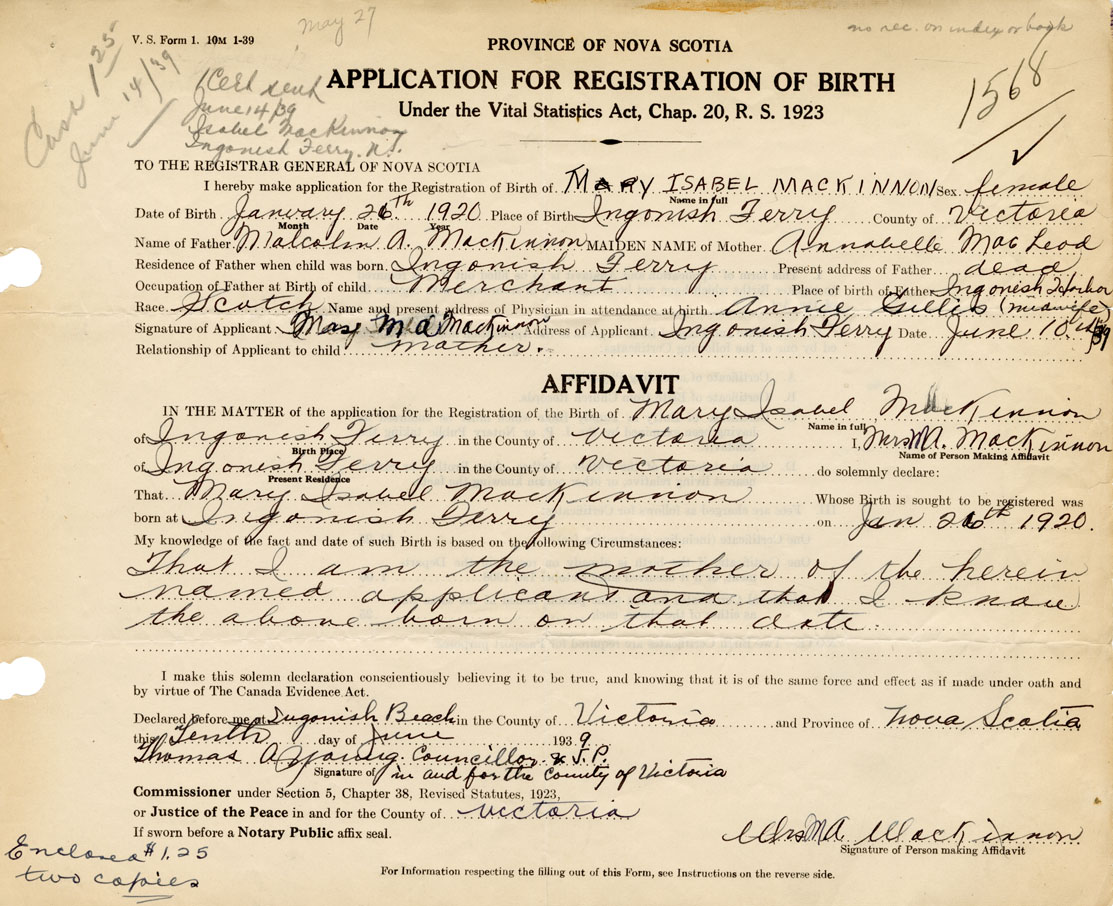 May 27
no rec. on index or book
V. S. Form 1. 10M 1-39
Cash 1.25
June 14/39
PROVINCE OF NOVA SCOTIA
APPLICATION FOR REGISTRATION OF BIRTH
Under the Vital Statistics Act, Chap. 20, R. S. 1923
1568
Cert sent
June 14/39
Isabel MacKinnon
Ingonish Ferry. N.S.
TO THE REGISTRAR GENERAL OF NOVA SCOTIA
I hereby make application for the Registration of Birth of MARY ISABEL MACKINNON Sex female
Name in full
Date of Birth January 26th 1920 Place of Birth Ingonish Ferry County of Victoria
Month Date Year
Name of Father Malcolm A. MacKinnon MAIDEN NAME of Mother Annabelle MacLeod
Residence of Father when child was born Ingonish Ferry Present address of Father dead
Occupation of Father at Birth of child Merchant Place of birth of Father Ingonish Harbor
Race Scotch Name and present address of Physician in attendance at birth Annie Gillis (midwife)
Signature of Applicant Mrs M A MacKinnon Address of Applicant Ingonish Ferry Date June 10th/39
Relationship of Applicant to child mother.
AFFIDAVIT
IN THE MATTER of the application for the Registration of the Birth of Mary Isabel MacKinnon
Name in full
of Ingonish Ferry in the County of Victoria I, Mrs M A. MacKinnon
Birth Place Name of Person Making Affidavit
of Ingonish Ferry in the County of Victoria do solemnly declare:
Present Residence
That Mary Isabel MacKinnon Whose Birth is sought to be registered was
born at Ingonish Ferry on Jan 26th 1920.
My knowledge of the fact and date of such Birth is based on the following Circumstances:
That I am the mother of the herein
named applicant and that I know
the above born on that date.
I make this solemn declaration conscientiously believing it to be true, and knowing that it is of the same force and effect as if made under oath and
by virtue of The Canada Evidence Act.
Declared before me at Ingonish Beach in the County of Victoria and Province of Nova Scotia
this Tenth day of June 1939
Thomas A Young Councillor & J.P.
Signature of in and for the County of Victoria
Commissioner under Section 5, Chapter 38, Revised Statutes, 1923,
or Justice of the Peace in and for the County of Victoria
If sworn before a Notary Public affix seal.
Mrs M A MacKinnon
Signature of Person making Affidavit
Enclosed $1.25
two copies
For Information respecting the filling out of this Form, see Instructions on the reverse side.